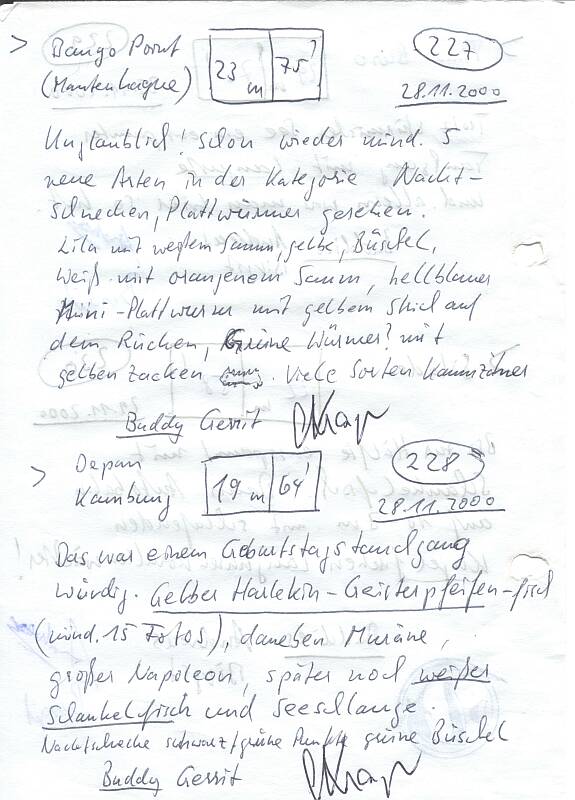 > Bango Point 23 m 75' 227
(Mantenhague) 28.11.2000
Unglaublich! schon wieder mind. 5
neue Arten in der Kategorie Nackt-
schnecken, Plattwürmer gesehen.
Lila mit weißem Saum, gelbe, Büschel,
weiß mit orangenem Saum, hellblauer
Mini-Plattwurm mit gelbem Strich auf
dem Rücken, Grüne Würmer? mit
gelben Zacken. Viele Sorten Kammzähner
Buddy Gerrit
> Depan 19 m 64' 228
Kambung 28.11.2000
Das war einem Geburtstagstauchgang
würdig. Gelber Harlekin-Geisterpfeifen-fisch
(mind. 15 Fotos), daneben Muräne,
großer Napoleon, später noch weißer
Schaukelfisch und Seeschlange.
Nacktschnecke schwarz/grüne Punkte grüne Büschel
Buddy Gerrit